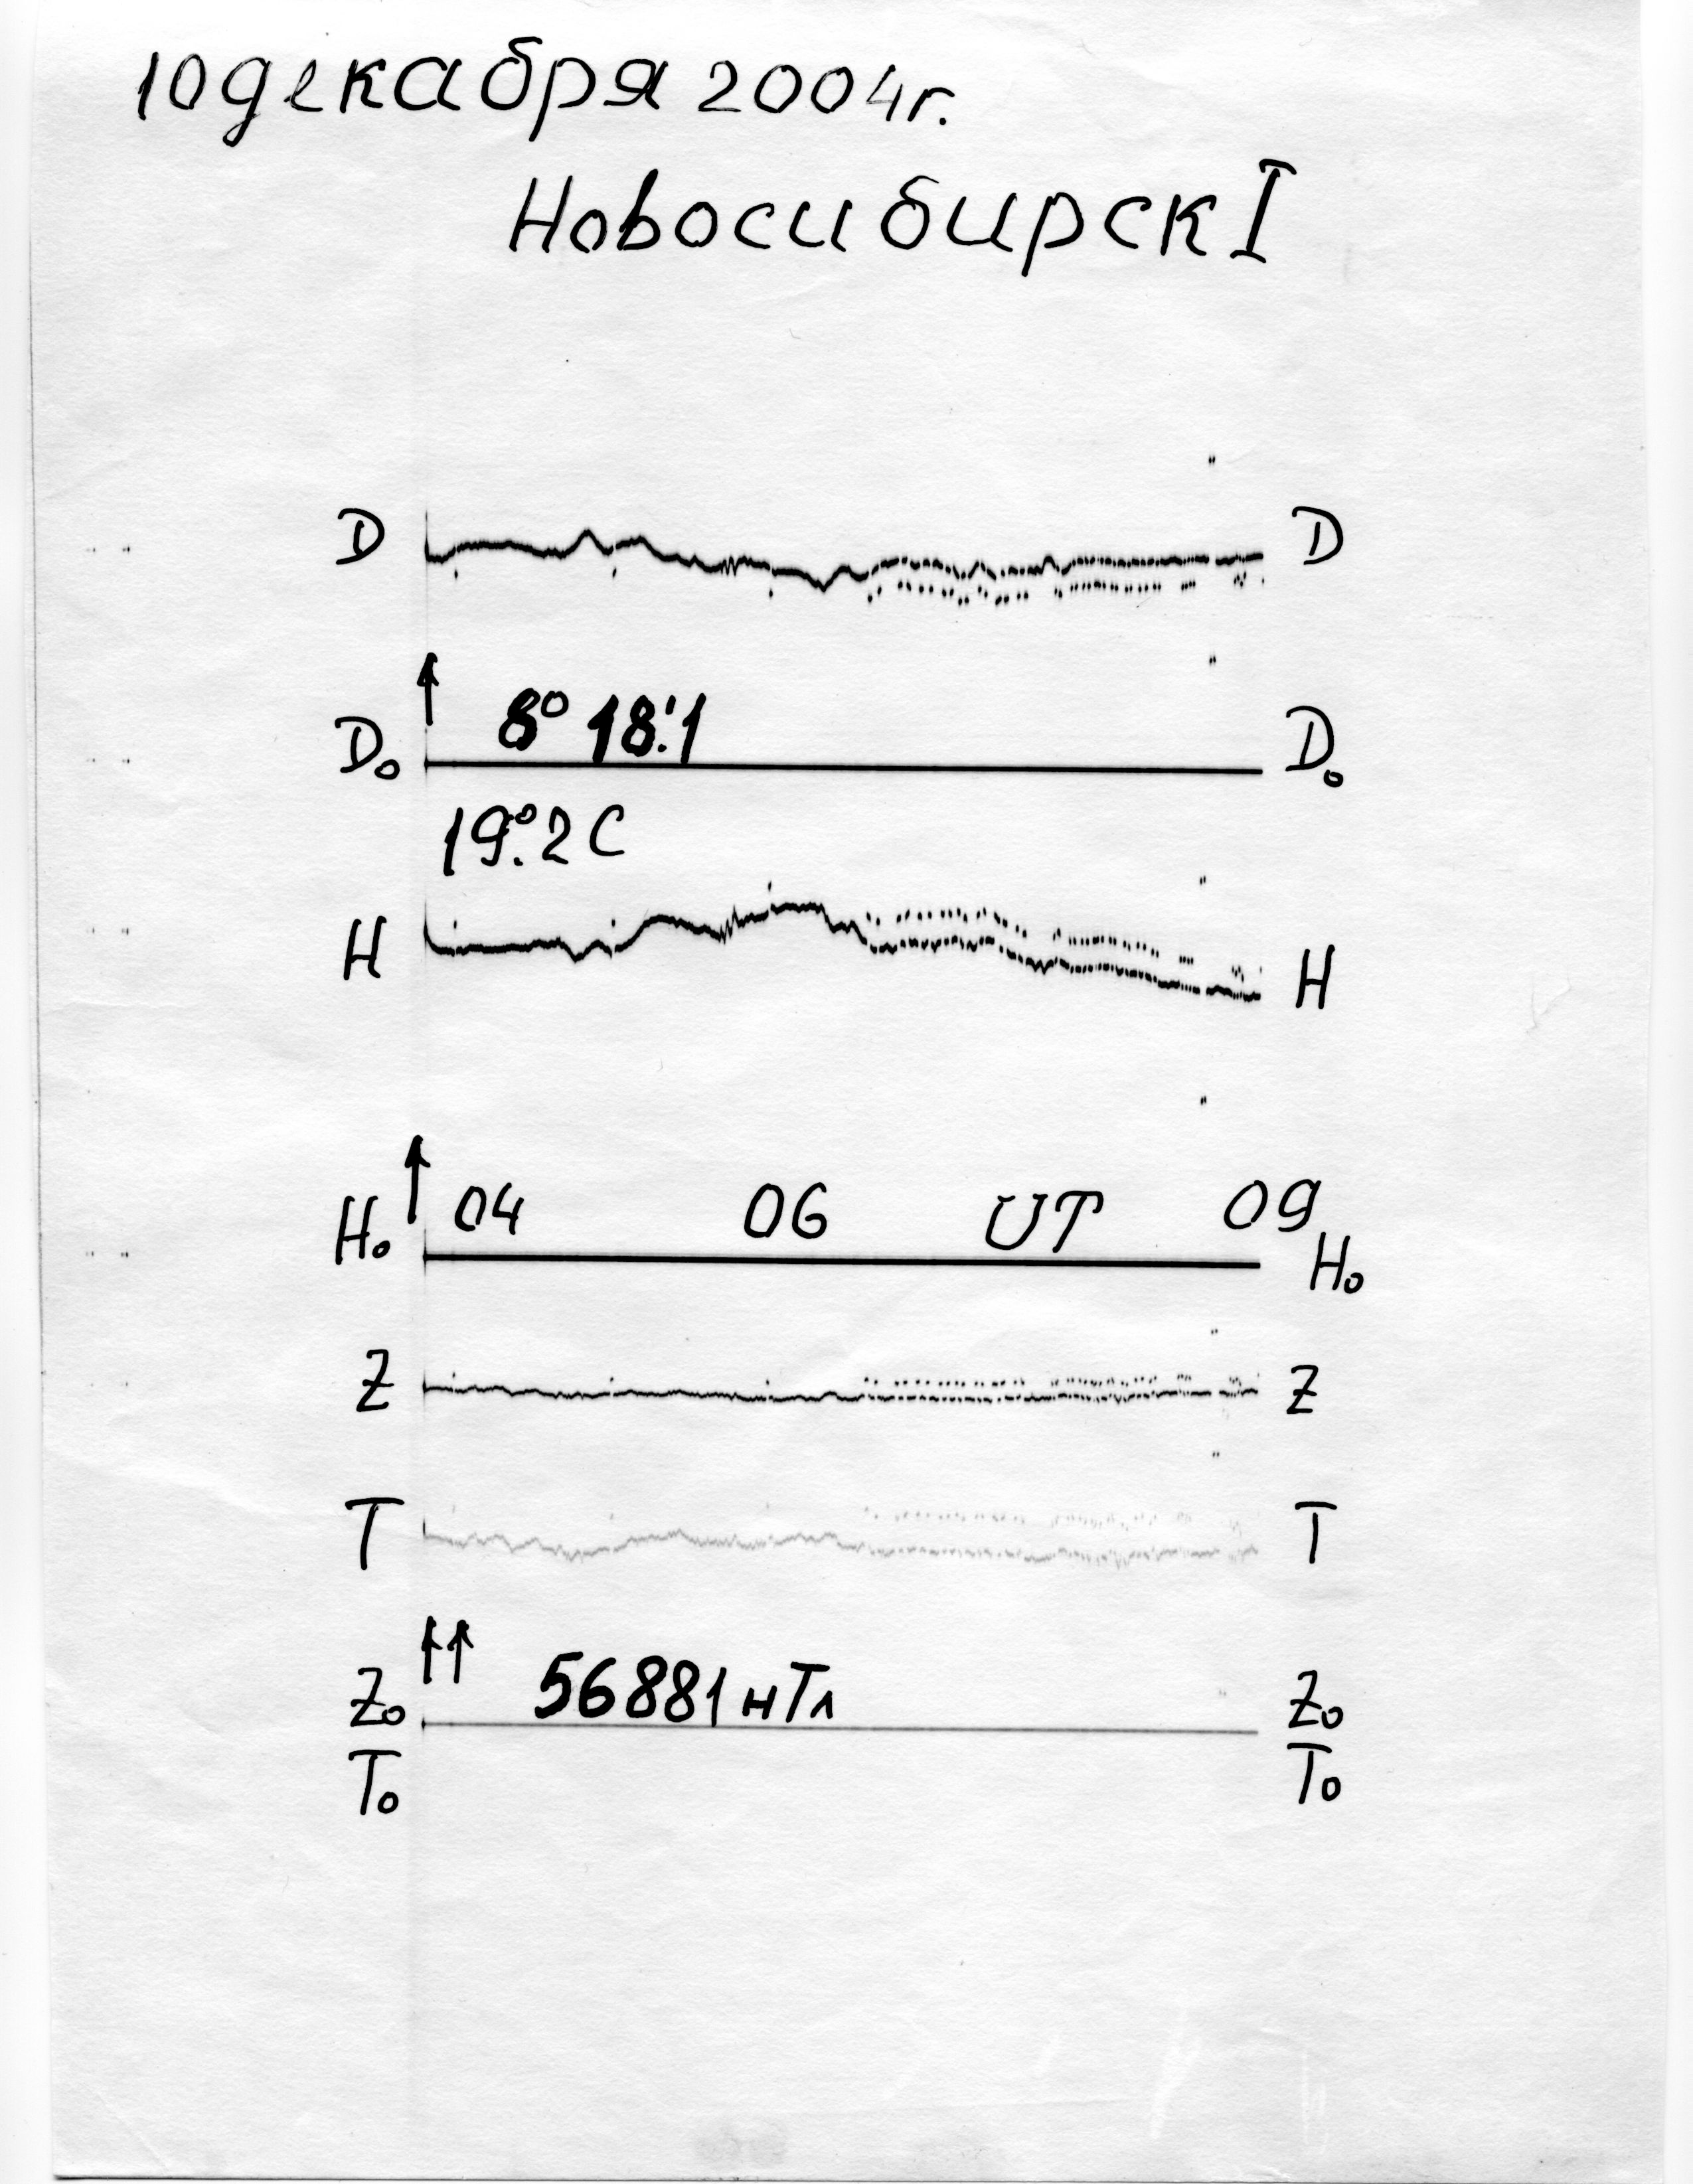 10 декабря 2004г.
Новосибирск I
D D
8° 18.'1
D₀ D₀
19.°2 C
H H
04 06 UT 09
H₀ H₀
Z Z
T T
56881 нТл
Z₀ Z₀
T₀ T₀